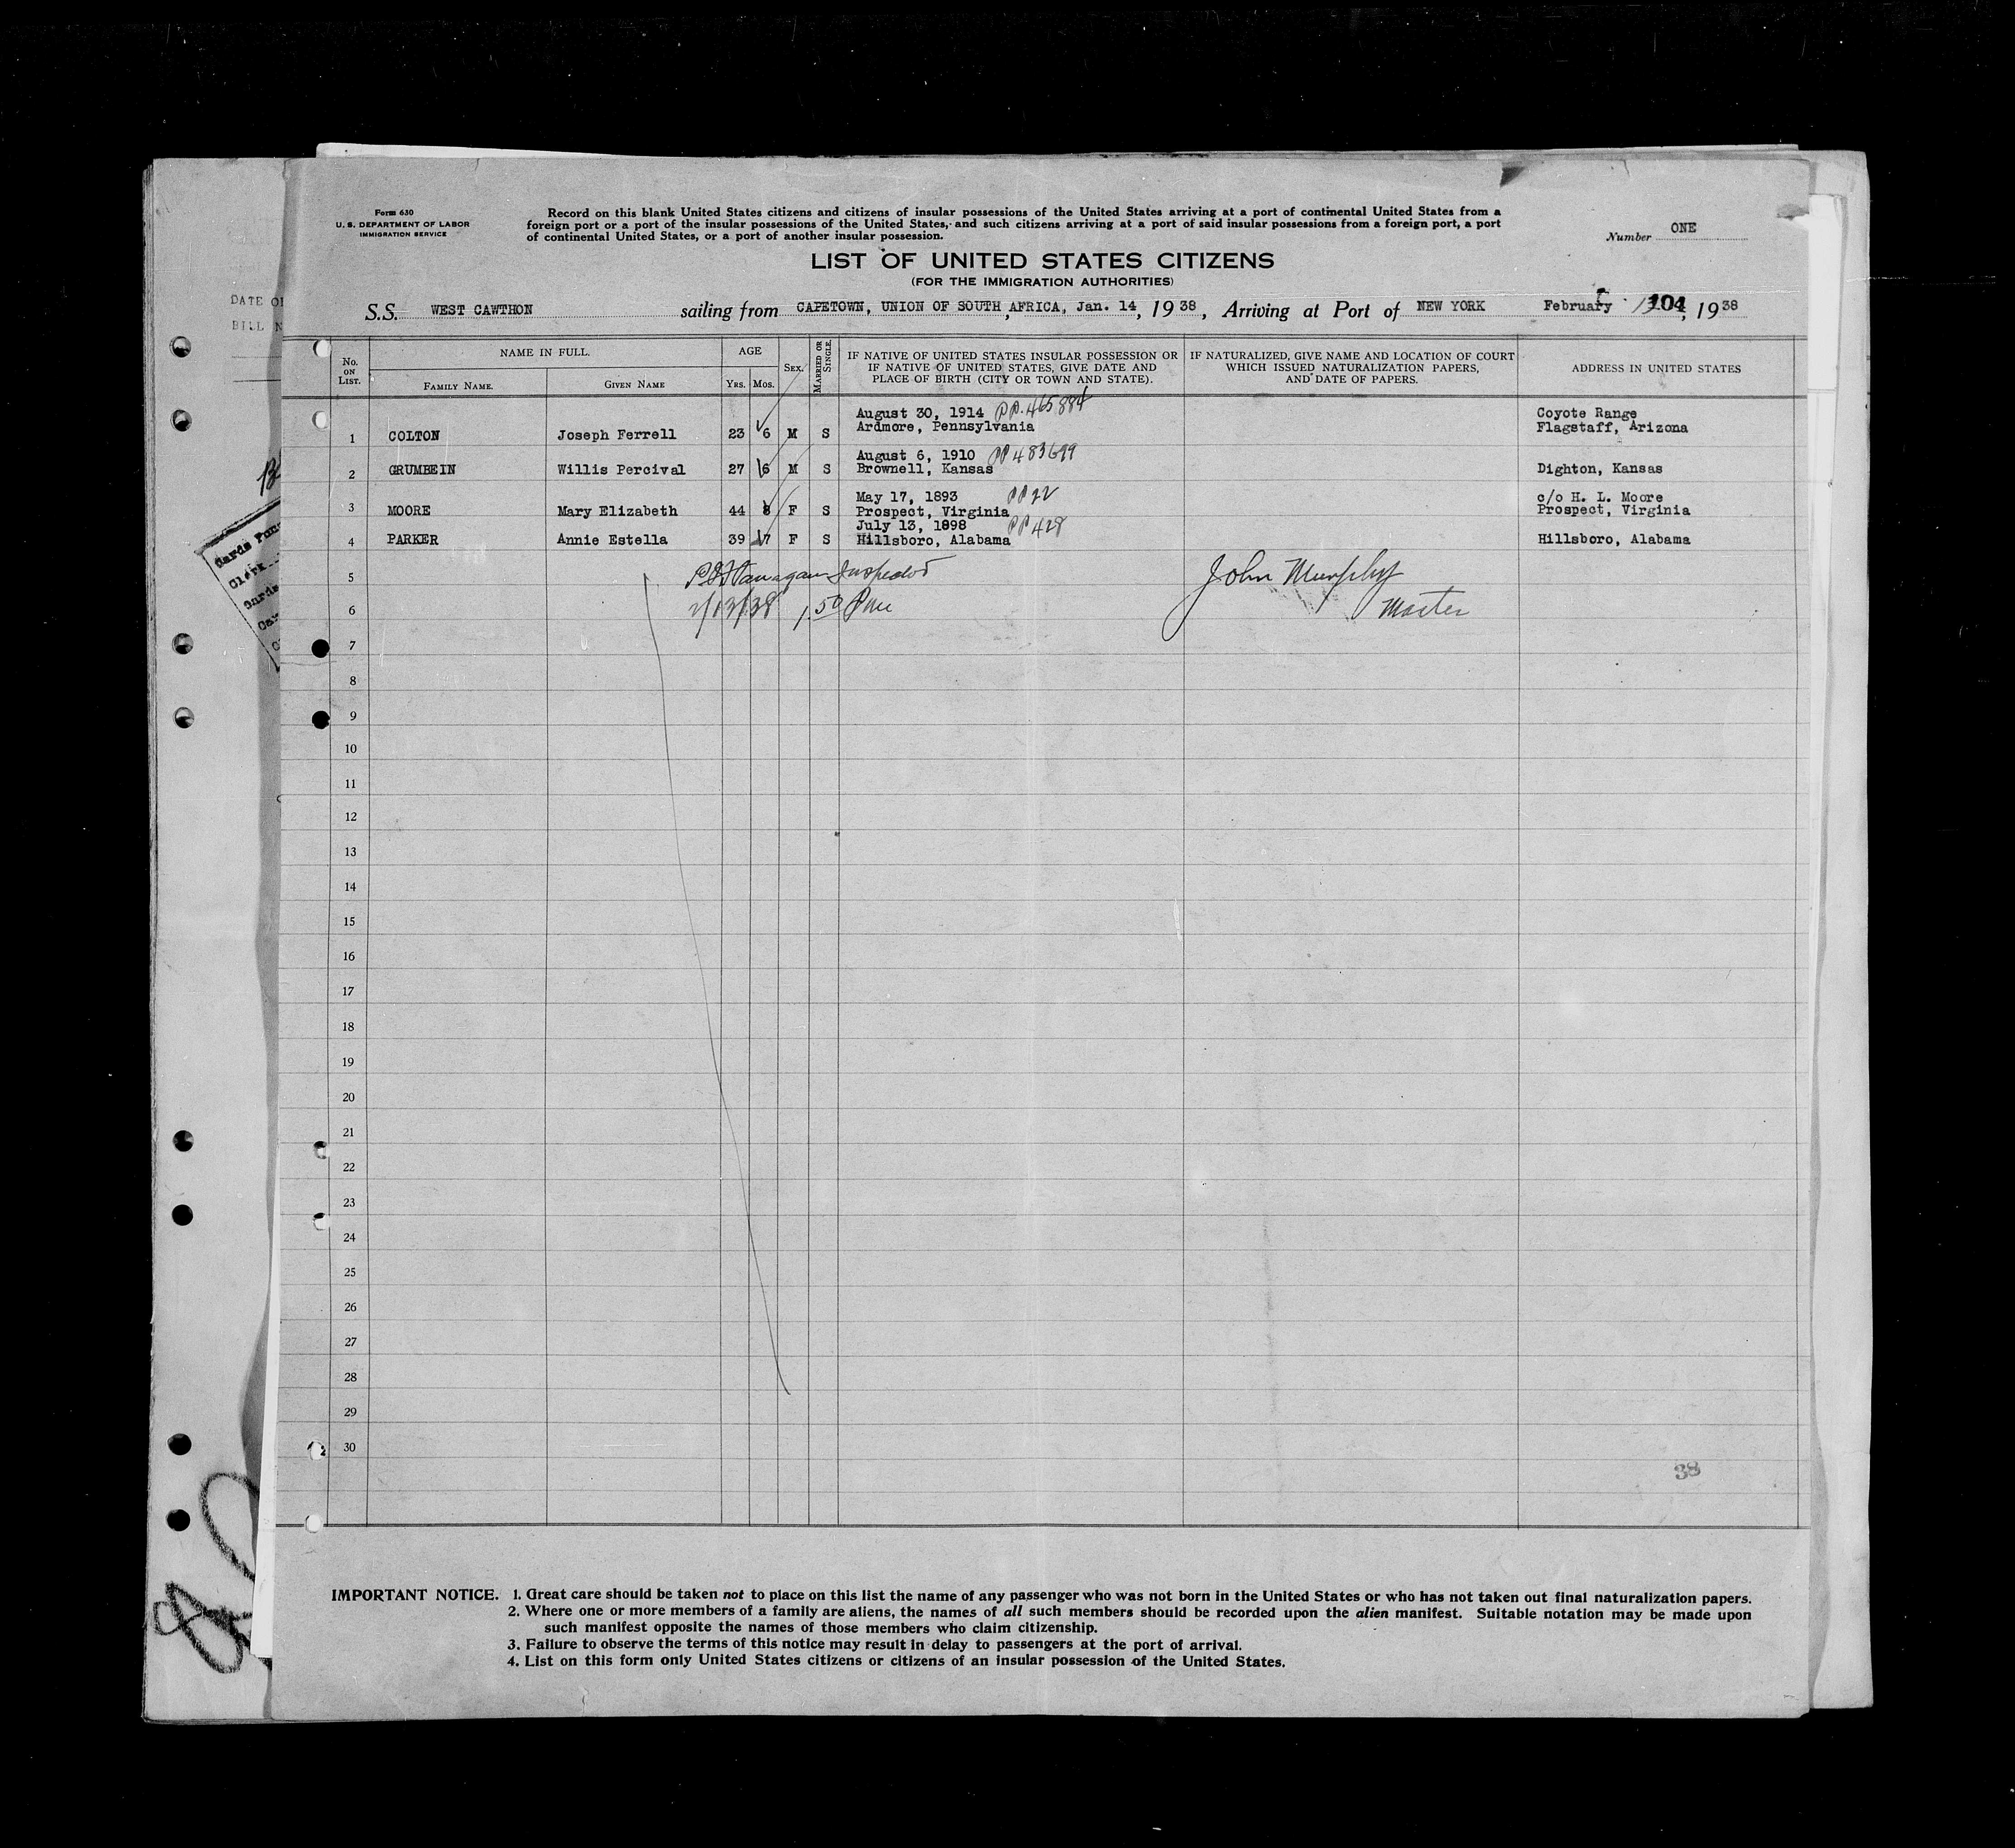 Form 630
U. S. DEPARTMENT OF LABOR
IMMIGRATION SERVICE
Record on this blank United States citizens and citizens of insular possessions of the United States arriving at a port of continental United States from a
foreign port or a port of the insular possessions of the United States, and such citizens arriving at a port of said insular possessions from a foreign port, a port
of continental United States, or a port of another insular possession.
Number ONE
LIST OF UNITED STATES CITIZENS
(FOR THE IMMIGRATION AUTHORITIES)
DATE
BILL
S.S. WEST CAWTHON sailing from CAPETOWN, UNION OF SOUTH AFRICA, Jan. 14, 1938, Arriving at Port of NEW YORK February 13 104, 1938
No. ON LIST. NAME IN FULL. AGE SEX. MARRIED OR SINGLE. IF NATIVE OF UNITED STATES INSULAR POSSESSION OR IF NATIVE OF UNITED STATES, GIVE DATE AND PLACE OF BIRTH (CITY OR TOWN AND STATE). IF NATURALIZED, GIVE NAME AND LOCATION OF COURT WHICH ISSUED NATURALIZATION PAPERS, AND DATE OF PAPERS. ADDRESS IN UNITED STATES
FAMILY NAME. GIVEN NAME YRS. MOS.
August 30, 1914 PP. 465884 Coyote Range
1 COLTON Joseph Ferrell 23 6 M S Ardmore, Pennsylvania Flagstaff, Arizona
August 6, 1910 PP 483699
2 GRUMBEIN Willis Percival 27 6 M S Brownell, Kansas Dighton, Kansas
May 17, 1893 PP 22 c/o H. L. Moore
3 MOORE Mary Elizabeth 44 8 F S Prospect, Virginia Prospect, Virginia
July 13, 1898 PP 428
4 PARKER Annie Estella 39 7 F S Hillsboro, Alabama Hillsboro, Alabama
5 Flanagan Inspector John Murphy
6 2/13/38 1.50 Pm Master
7
8
9
10
11
12
13
14
15
16
17
18
19
20
21
22
23
24
25
26
27
28
29
30
38
Cards
Clerk
Cards
IMPORTANT NOTICE. 1. Great care should be taken not to place on this list the name of any passenger who was not born in the United States or who has not taken out final naturalization papers.
2. Where one or more members of a family are aliens, the names of all such members should be recorded upon the alien manifest. Suitable notation may be made upon
such manifest opposite the names of those members who claim citizenship.
3. Failure to observe the terms of this notice may result in delay to passengers at the port of arrival.
4. List on this form only United States citizens or citizens of an insular possession of the United States.